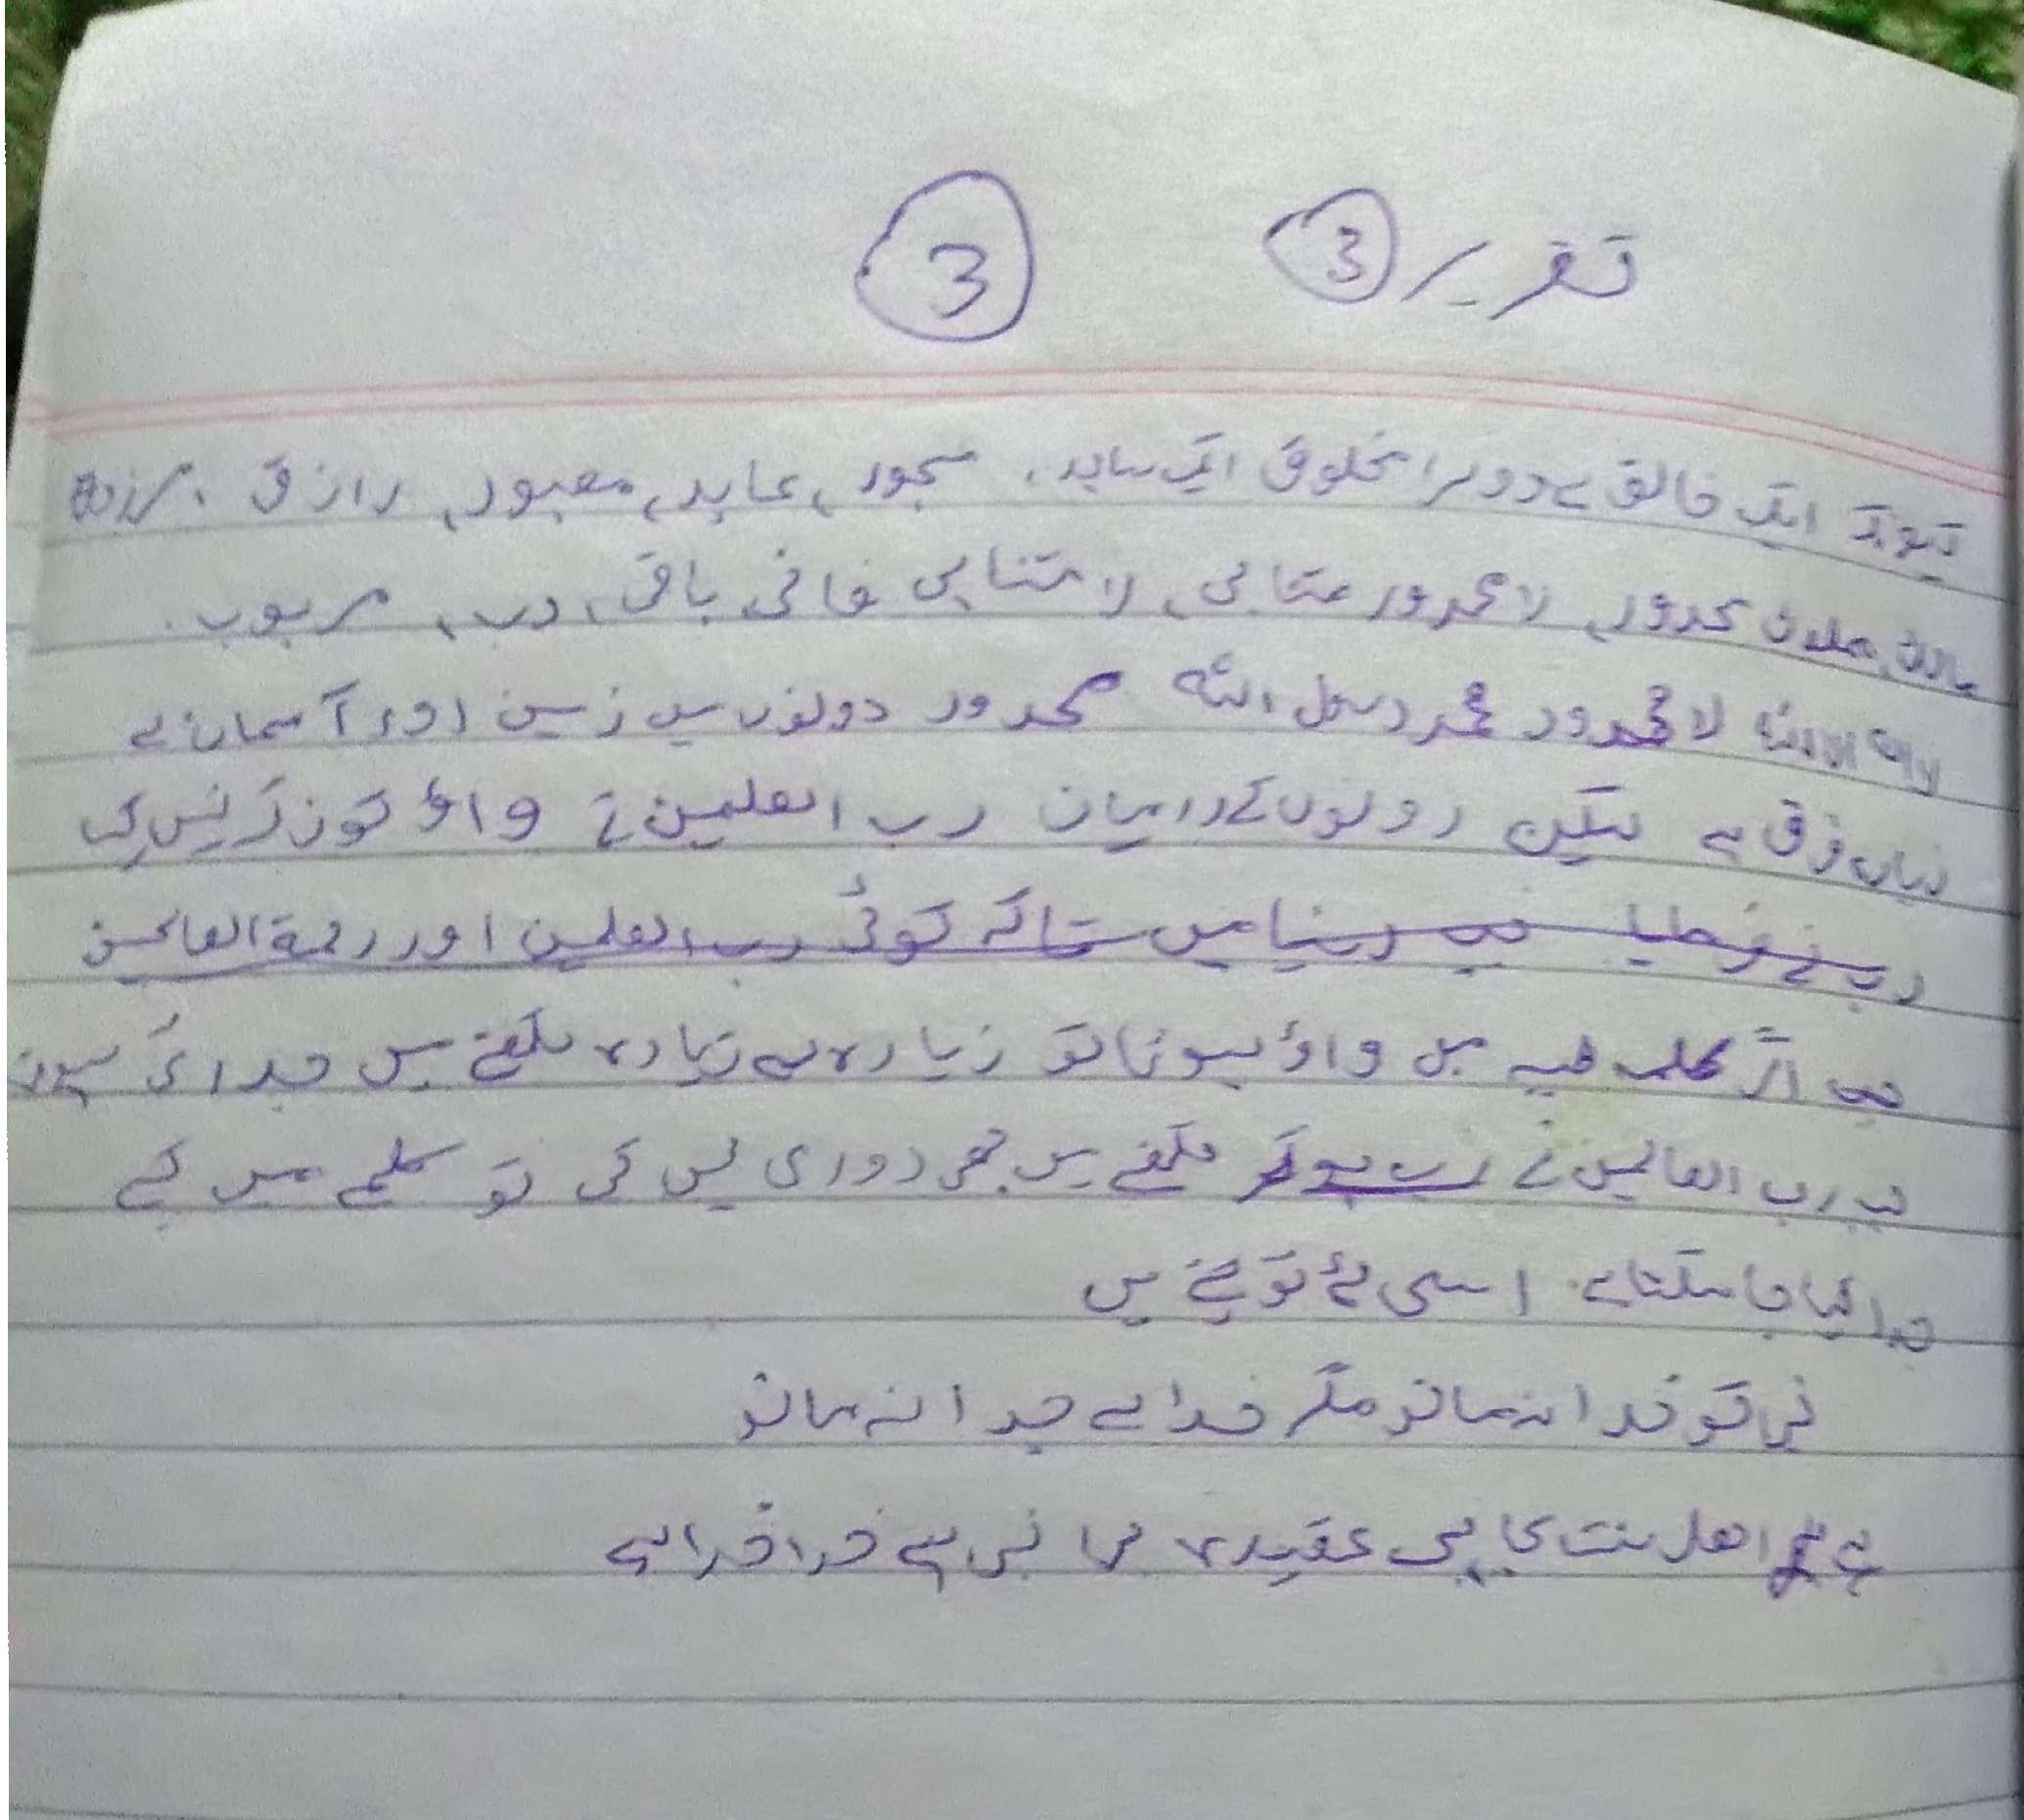 تقریر 3 3
کیونکہ ایک خالق ہے دوسرا مخلوق ایک ساجد، مسجود، عابد، معبود، رازق، مرزوق
مالک، مملوک محدود، لا محدود متناہی، لا متناہی فانی باقی، رب، مربوب۔
لا الہ الا اللہ لا محدود محمد رسول اللہ محدود دونوں میں زمین اور آسمان سے
زیادہ فرق ہے لیکن دونوں کے درمیان رب العلمین نے واؤ کو ذکر نہیں کیا
رب نے فرمایا جب دنیا میں تاکہ کوئی رب العلمین اور رحمۃ العالمین
جب اگر کلمہ طیبہ میں واؤ ہوتا تو زیادہ سے زیادہ لکھنے میں جدائی ہوتی
جب رب العالمین نے رب ہو کر لکھنے میں بھی دوری نہیں کی تو کلمے میں کیسے
جدا کیا جا سکتا ہے۔ اسی لئے تو کہتے ہیں
نبی کو خدا نہ مانو مگر خدا سے جدا نہ مانو
اھلسنت کا یہی عقیدہ نبی نبی ہے خدا خدا ہے